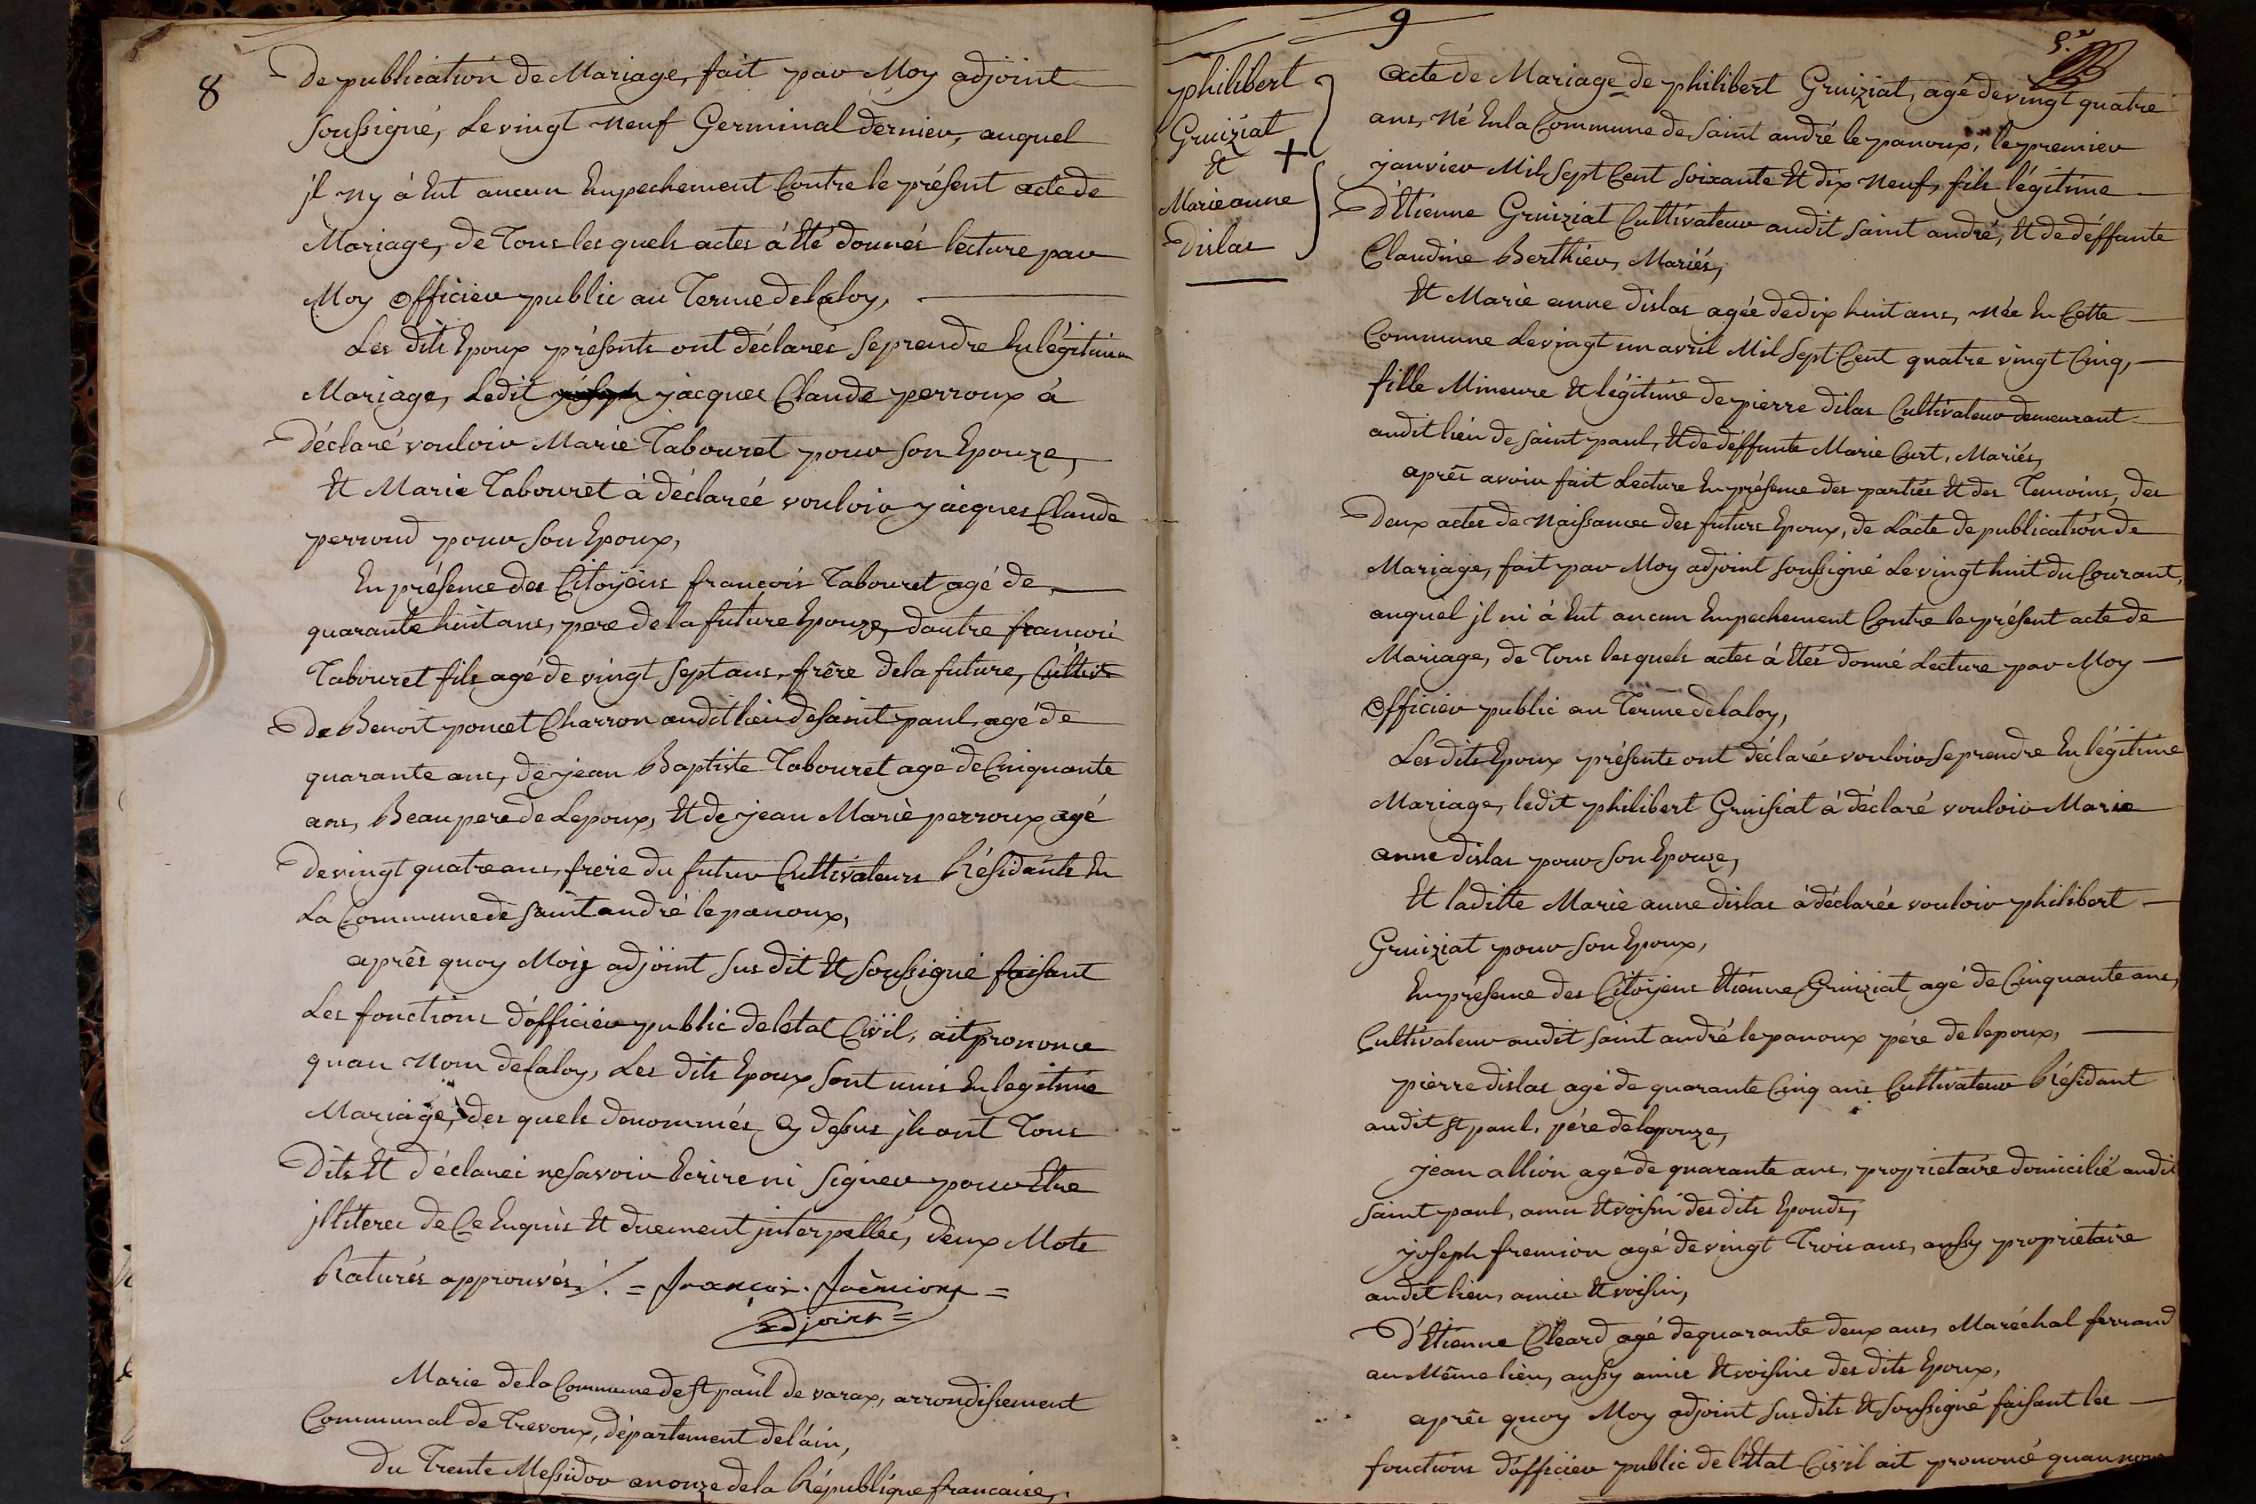 8
De publication de Mariage, fait par Moy adjoint
soussigné, Le vingt neuf Germinal dernier, auquel
jl ny à Eut aucun Empechement Contre le présent acte de
Mariage, de Tous les quels actes à Eté donnés lecture par
Moy officier public au Terme de la loy,
Les dits Epoux présents ont déclarés se prendre En légitime
Mariage, Ledit joseph jacques Claude perroux à
Déclaré vouloir Marie Tabouret pour son Epouze,
Et Marie Tabouret à déclaréé vouloir jacques Claude
perroud pour son Epoux,
En présence des Citoÿens francois Tabouret agé de
quarante huit ans, pere de la future Epouze, dautre francois
Tabouret fils agé de vingt sept ans, frêre de la future,
De Benoit poncet Charron audit lieu de saint paul, agé de
quarante ans, de jean Baptiste Tabouret agé de Cinquante
ans, Beau pere de Lepoux, Et de jean Marie perroux agé
De vingt quatre ans, frere du futur Cultivateurs Résidants En
La Commune de saint andré le panoux,
après quoy Moy adjoint sus dit Et soussigné faisant
Les fonctions d'officier public de letat Civil, ait prononce
quau Nom de la loy, Les dits Epoux sont unis En legitime
Mariage, des quels denommés Cy desus jls ont Tous
Dits Et déclarés ne savoir Ecrire ni signer pour Etre
jlliterés de Ce Enquis Et duement jnterpellés, deux Mots
Raturés approuvés ./. = francois. fremion =
adjoint =
Marie de la Commune de st paul de varax, arrondissement
Communal de Trevoux, département de l'ain,
Du Trente Messidor an onze de la République francaise,
9
philibert
Gruiziat
&
Marie anne
Dislas
+
acte de Mariage de philibert Gruiziat, agé de vingt quatre
ans, Né En la Commune de saint andré le panoux, le premier
janvier Mil sept Cent soixante Et dix Neuf, fils légitime
D'Etienne Gruiziat Cultivateur audit saint andré, Et de déffunte
Claudine Berthier, Mariés,
Et Marie anne dislas agéé de dix huit ans, Née En Cette
Commune Le vingt un avril Mil sept Cent quatre vingt Cinq,
fille Mineure Et légitime de pierre dilas Cultivateur demeurant
audit lieu de saint paul, Et de déffunte Marie Curt, Mariés,
après avoir fait Lecture En présence des parties Et des Temoins, des
Deux actes de Naissances des futurs Epoux, de L'acte de publication de
Mariage, fait par Moy adjoint soussigné Le vingt huit du Courant,
auquel jl ni à Eut aucun Empechement Contre le présent acte de
Mariage, de Tous les quels actes à Etés donné Lecture par Moy
officier public au Terme de la loy,
Les dits Epoux présents ont déclarés vouloir se prendre En légitime
Mariage, ledit philibert Gruisiat à déclaré vouloir Marie
anne dislas pour son Epouze,
Et laditte Marie anne dislas à déclaréé vouloir philibert
Gruiziat pour son Epoux,
En présence des Citoÿens Etienne Gruiziat agé de Cinquante ans,
Cultivateur audit saint andré le panoux pére de lepoux,
pierre dislas agé de quarante Cinq ans Cultivateur Résidant
audit st paul, pére de lepouze,
jean allion agé de quarante ans, proprietaire domicilié audit
saint paul, amis Et voisin des dits Epouds,
joseph fremion agé de vingt Trois ans, aussy proprietaire
audit lieu, amis Et voisin,
D'Etienne Cleard agé de quarante deux ans, Maréchal ferrand
au Même lieu, aussy amis Et voisins des dits Epoux,
après quoy Moy adjoint susdits Et soussigné faisant les
fonctions d'officier public de l'Etat Civil ait prononcé quau nom